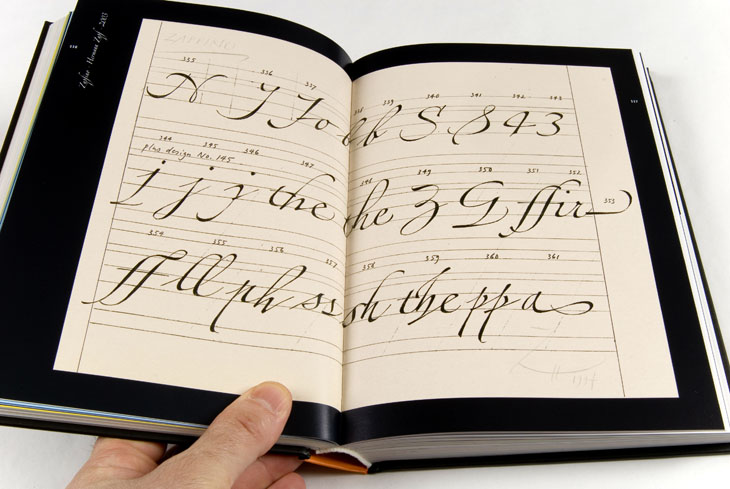 Zapfino Hermann Zapf 2003
ZAPFINO
335 336 337 338 339 340 341 342 343
N J Jo b b S 8 4 3
344 345 346 347 348 349 350 351 352
plus design No. 145
j j j the the Z G ffir
353
354 355 356 357 358 359 360 361
ff ll ph ss sh the pp a